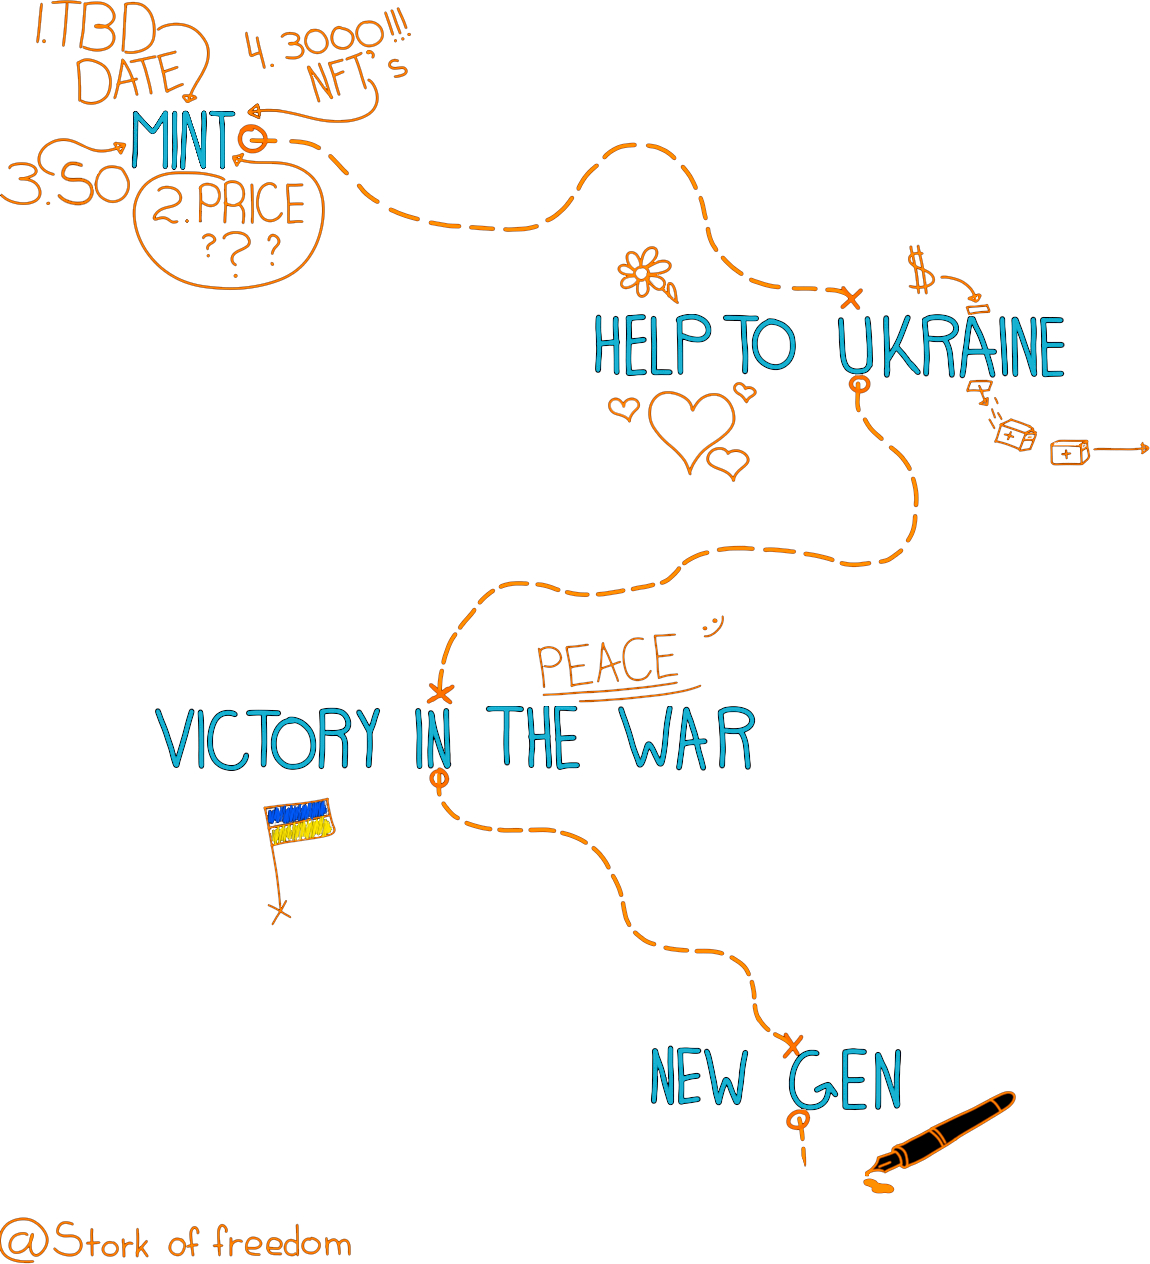 1.TBD
DATE
4.3000!!!
NFT's
MINT
3.SO
2.PRICE
???
$
HELP TO UKRAINE
PEACE :)
VICTORY IN THE WAR
NEW GEN
@Stork of freedom